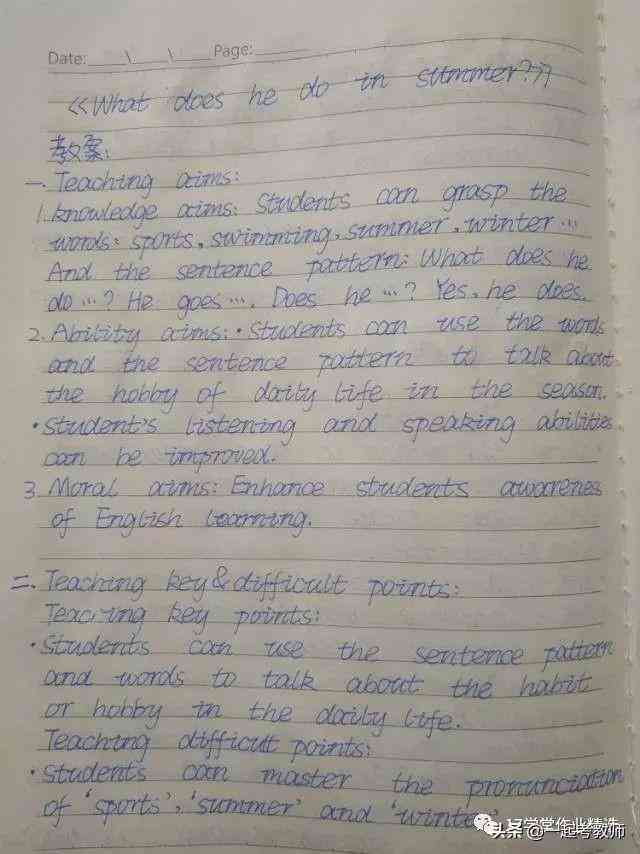 Date:____\____\____Page:______
《What does he do in summer?》
教案:
一. Teaching aims:
1. knowledge aims: Students can grasp the
words: sports, swimming, summer, winter...
And the sentence pattern: What does he
do ...? He goes .... Does he ...? Yes, he does.
2. Ability aims: •Students can use the words
and the sentence pattern to talk about
the hobby of daily life in the season.
•Student's listening and speaking abilities
can be improved.
3. Moral aims: Enhance students awarenes
of English learning.
二. Teaching key & difficult points:
Teaching key points:
•Students can use the sentence pattern
and words to talk about the habit
or hobby in the daily life.
Teaching difficult points:
•Students can master the pronunciation
of 'sports', 'summer' and 'winter'
学堂堂作业精选
头条@一起考教师